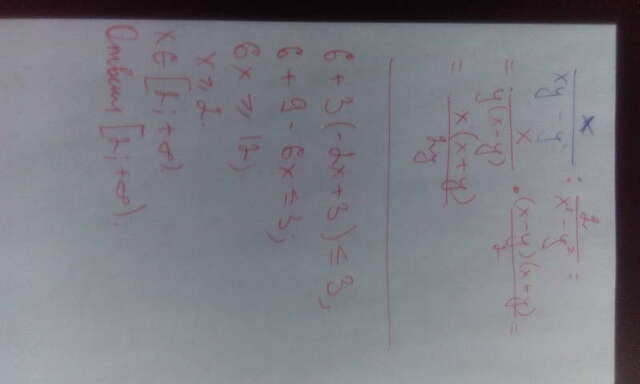 x/(xy - y²) : 2/(x² - y²) =
= x/(y(x-y)) · (x-y)(x+y)/2 =
= x(x+y)/2y
6 + 3(-2x+3) ≤ 3,
6 + 9 - 6x ≤ 3;
6x ≥ 12;
x ≥ 2.
x ∈ [2; +∞)
Ответ [2; +∞).